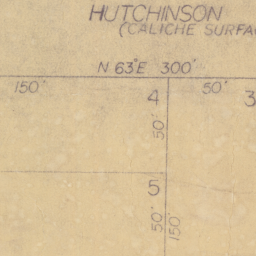 HUTCHINSON
(CALICHE SURFA
N 63°E 300'
150' 4 50' 3
50'
5
50' 150'